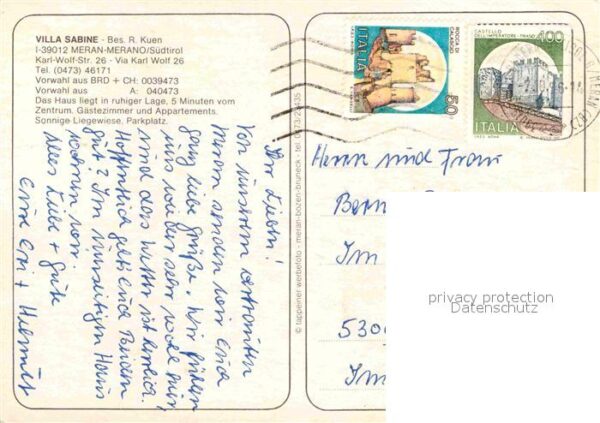 VILLA SABINE - Bes. R. Kuen
I-39012 MERAN-MERANO/Südtirol
Karl-Wolf-Str. 26 - Via Karl Wolf 26
Tel. (0473) 46171
Vorwahl aus BRD + CH: 0039473
Vorwahl aus A: 040473
Das Haus liegt in ruhiger Lage, 5 Minuten vom
Zentrum. Gästezimmer und Appartements.
Sonnige Liegewiese. Parkplatz.
Ihr Lieben!
Von unserem
Meran senden wir Euch
ganz liebe Grüße. Wir fühlen
uns wieder sehr wohl hier,
und das Wetter ist herrlich.
Hoffentlich geht's Euch Beiden
gut? Im Haus
wohnen wir.
Alles Liebe + Gute
Eure + Helmut
© tappeiner werbefoto - meran-bozen-bruneck - tel. 0473/23435
ROCCA DI
CALASCIO
50
ITALIA
CASTELLO
DELL'IMPERATORE - PRATO
400
ITALIA
Herrn und Frau
Im
5300
Im
privacy protection
Datenschutz